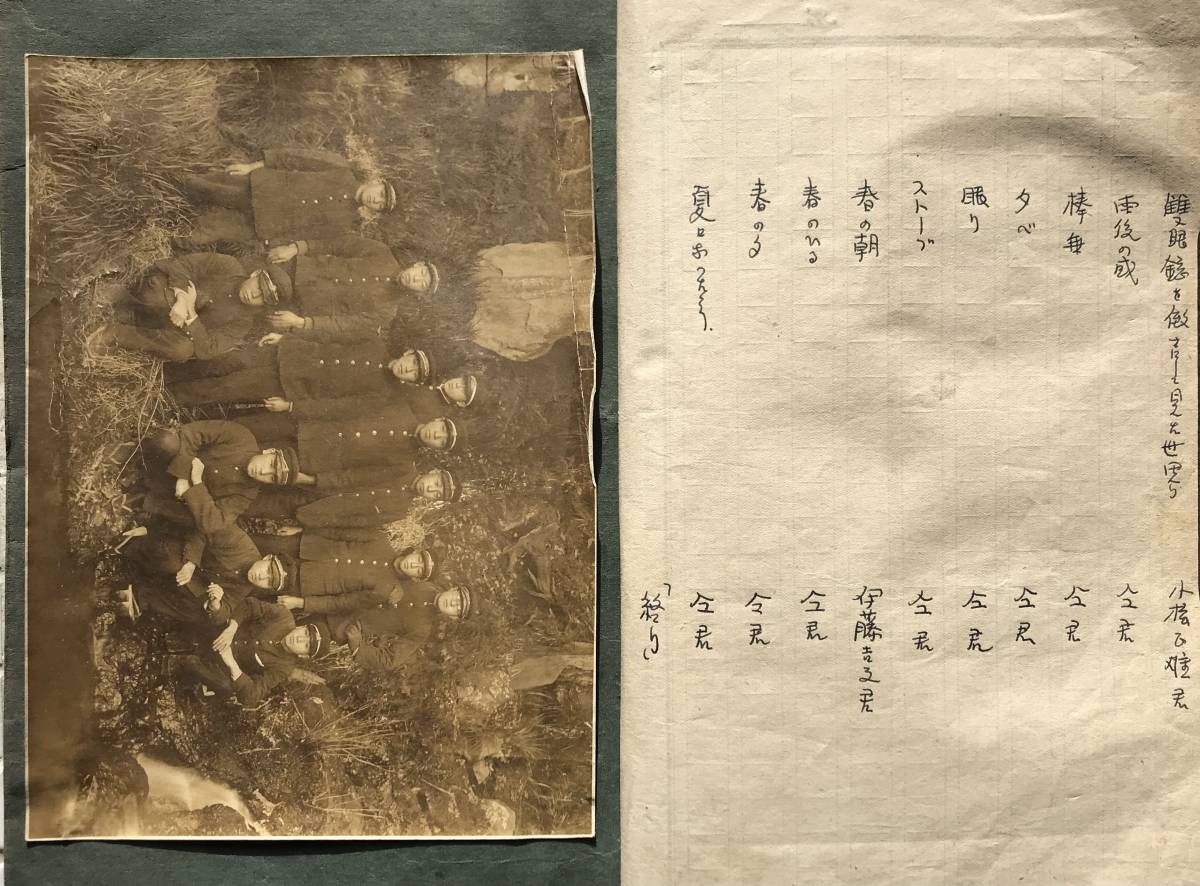 雙眼鏡を して見た世界 小松正雄君
雨後の感 仝君
棒 仝君
夕べ 仝君
眠り 仝君
ストーブ 仝君
春の朝 伊藤吉文君
春のひる 仝君
春の夕 仝君
夏 仝君
「終り」